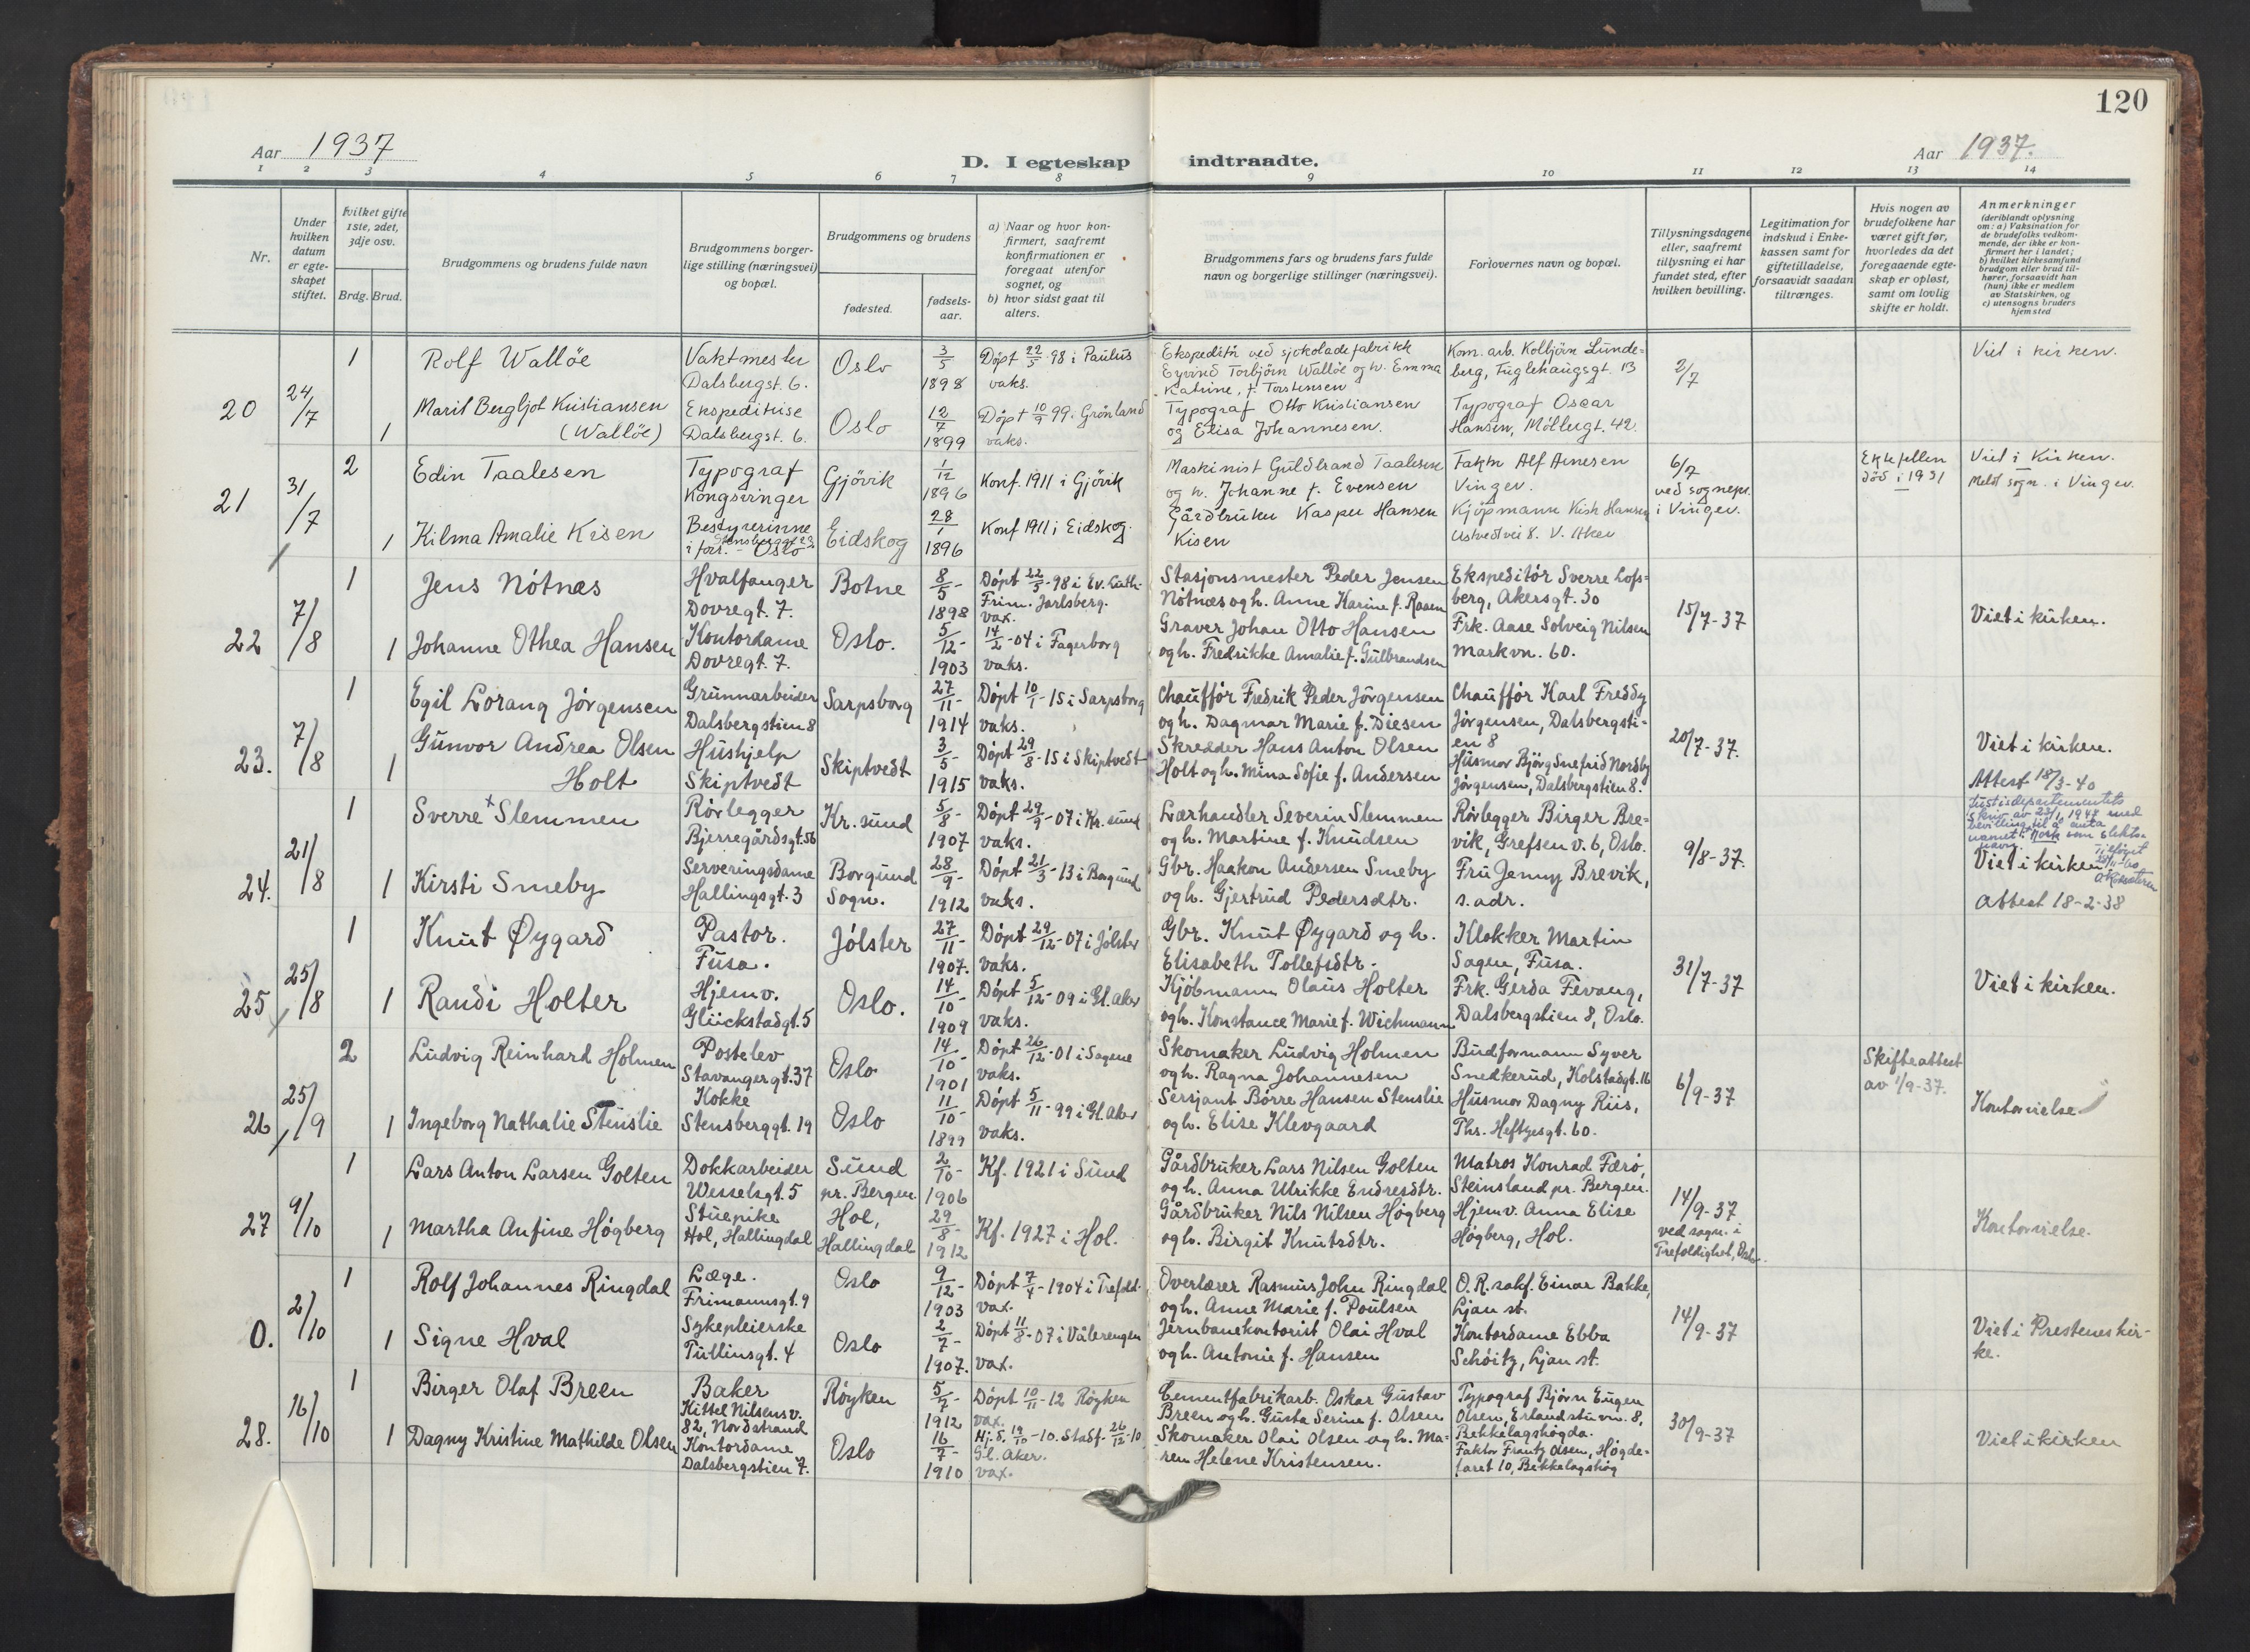 120
Aar 1937
D. I egteskap indtraadte.
Aar 1937.
1 2 3 4 5 6 7 8 9 10 11 12 13 14
Nr.
Under hvilken datum er egte-skapet stiftet.
hvilket gifte 1ste, 2det, 3dje osv.
Brdg. Brud.
Brudgommens og brudens fulde navn
Brudgommens borger-
lige stilling (næringsvei)
og bopæl.
Brudgommens og brudens
fødested.
fødsels-
aar.
a) Naar og hvor kon-
firmert, saafremt
konfirmationen er
foregaat utenfor
sognet, og
b) hvor sidst gaat til
alters.
Brudgommens fars og brudens fars fulde
navn og borgerlige stillinger (næringsvei).
Forlovernes navn og bopæl.
Tillysningsdagene
eller, saafremt
tillysning ei har
fundet sted, efter
hvilken bevilling.
Legitimation for
indskud i Enke-
kassen samt for
giftetilladelse,
forsaavidt saadan
tiltrænges.
Hvis nogen av
brudefolkene har
været gift før,
hvorledes da det
foregaaende egte-
skap er opløst,
samt om lovlig
skifte er holdt.
Anmerkninger
(deriblandt oplysning
om: a) Vaksination for
de brudefolks vedkom-
mende, der ikke er kon-
firmert her i landet;
b) hvilket kirkesamfund
brudgom eller brud til-
hører, forsaavidt han
(hun) ikke er medlem
av Statskirken, og
c) utensogns bruders
hjemsted
20
24/7
1
Rolf Wallöe
Vaktmester
Dalsbergst. 6.
Oslo
3/5
1898
Döpt 22/5 98 i Paulus
vaks.
Ekspeditör ved sjokoladefabrikk
Eyvind Torbjörn Wallöe og h. Emma
Katrine, f. Torstensen
Kom. arb. Kolbjörn Lunde-
berg, Fuglehaugsgt. 13
2/7
Viet i kirken.
1
Marit Bergljot Kristiansen
(Wallöe)
Ekspeditrise
Dalsbergst. 6.
Oslo
12/7
1899
Döpt 10/9 99 i Grönland
vaks.
Typograf Otto Kristiansen
og Elisa Johannesen.
Typograf Oscar
Hansen, Möllergt. 42.
21
31/7
2
Edin Taalesen
Typograf
Kongsvinger
Gjövik
1/12
1896
Konf. 1911 i Gjövik
Maskinist Guldbrand Taalesen
og h. Johanne f. Evensen
Faktor Alf Arnesen
Vinger.
6/7
ved sognepr.
i Vinger.
Ektefellen
död i 1931
Viet i Kirken.
Meldt sogn. i Vinger.
1
Kilma Amalie Kisen
Bestyrerinne
Stensberggt 23
i forr. - Oslo
Eidskog
28/1
1896
Konf 1911 i Eidskog.
Gårdbruker Kasper Hansen
Kisen
Kjöpmann Kish Hansen
V. Aker
22
7/8
1
Jens Nótnæs
Hvalfanger
Dovregt. 7.
Botne
8/5-
1898
Döpt 22/5-98 i Ev. Luth.
Frim. Jarlsberg.
vax.
Stasjonsmester Peder Jensen
Nötnæs og h. Anne Karine f. Raaen
Ekspeditör Sverre Lofs-
berg, Akersgt. 30
15/7-37
Viet i kirken.
1
Johanne Othea Hansen
Kontordame
Dovregt. 7.
Oslo.
5/12-
1903
14/2-04 i Fagerborg
vaks.
Graver Johan Otto Hansen
og h. Fredrikke Amalie f. Gulbrandsen
Frk. Aase Solveig Nilsen
Markvn. 60.
23.
7/8
1
Egil Lorang Jörgensen
Grunnarbeider
Dalsbergstien 8
Sarpsborg
27/11-
1914
Döpt 10/1-15 i Sarpsborg
vaks.
Chauffór Fredrik Peder Jörgensen
og h. Dagmar Marie f. Diesen
Chauffór Karl Freddy
Jörgensen, Dalsbergsti-
en 8
20/7-37.
Viet i kirken.
1
Gunvor Andrea Olsen
Holt
Hushjelp
Skiptvedt
Skiptvedt
3/5-
1915
Döpt 29/8-15 i Skiptvedt
vaks.
Skredder Hans Anton Olsen
Holt og h. Mina Sofie f. Andersen
Husmor Björg Snefrid Nordby
Jörgensen, Dalsbergstien 8.
Attest 18/3-40
24.
21/8
1
Sverre + Slemmen
Rörlegger
Bjerregårdsgt. 56
Kr. sund
5/8-
1907
Döpt 29/9-07 i Kr. sund
vaks.
Lærhandler Severin Slemmen
og h. Martine f. Knudsen
Rörlegger Birger Bre-
vik, Grefsen v. 6, Oslo.
9/8-37.
Justisdepartementets
skriv av 23/1 1947 med
bevilling til å anta
navnet: Nork som slekts-
navn.
Viet i kirken
1
Kirsti Smeby
Serveringsdame
Hallingsgt. 3
Borgund
Sogn.
28/9-
1912
Döpt 21/3-13 i Borgund
vaks.
Gbr. Haakon Andersen Smeby
og h. Gjertrud Pedersdtr.
Fru Jenny Brevik,
s. adr.
Attest 18-2-38
25
25/8
1
Knut Øygard
Pastor.
Fusa.
Jölster
27/11-
1907.
Döpt 29/12-07 i Jölster
vaks.
Gbr. Knut Øygard og h.
Elisabeth Tollefsdtr.
Klokker Martin
Sagen, Fusa.
31/7-37
Viet i kirken.
1
Randi Holter
Hjemv.
Glückstadgt. 5
Oslo.
14/10-
1909
Döpt 5/12-09 i Gl. Aker
vaks.
Kjöbmann Olaus Holter
og h. Konstance Marie f. Wichmann
Frk. Gerda Fevang,
Dalsbergstien 8, Oslo.
26
25/9
2
Ludvig Reinhard Holmen
Postelev
Stavangergt. 37
Oslo
14/10-
1901
Döpt 26/12-01 i Sagene
vaks.
Skomaker Ludvig Holmen
og h. Ragna Johannesen
Budformann Syver
Snedkerud, Kolstadgt. 16
6/9-37
Skifteattest
av 1/9-37.
Kontorvielse
1
Ingeborg Nathalie Stenslie
Kokke
Stensberggt. 19
Oslo
11/10-
1899
Döpt 5/11-99 i Gl. Aker
vaks.
Sersjant Börre Hansen Stenslie
og h. Elise Klevgaard
Husmor Dagny Riis,
Ths. Heftyesgt. 60.
27
9/10
1
Lars Anton Larsen Golten
Dokkarbeider
Wesselsgt. 5
Sund
pr. Bergen
2/10-
1906
Kf. 1921 i Sund
Gårdbruker Lars Nilsen Golten
og h. Anna Ulrikke Endresdtr.
Matros Konrad Færö,
Steinsland pr. Bergen.
14/9-37
ved sogn. i
Trefoldighet, Oslo.
Kontorvielse.
1
Martha Anfine Högberg
Stuepike
Hol, Hallingdal
Hol,
Hallingdal
29/8-
1912
Kf. 1927 i Hol.
Gårdbruker Nils Nilsen Högberg
og h. Birgit Knutsdtr.
Hjemv. Anna Elise
Högberg, Hol.
0.
2/10
1
Rolf Johannes Ringdal
Læge.
Frimannsgt. 9
Oslo
9/12-
1903
Döpt 7/4-1904 i Trefold.
vax.
Overlærer Rasmus John Ringdal
og h. Anne Marie f. Poulsen
O. R. sakf. Einar Bakke,
Ljan st.
14/9-37
Viet i Prestenes kir-
ke.
1
Signe Hval
Sykepleierske
Tullinsgt. 4
Oslo
2/7-
1907.
Döpt 11/8-07 i Vålerengen
vax.
Jernbanekontorist Olai Hval
og h. Antonie f. Hansen
Kontordame Ebba
Schöitz, Ljan st.
28.
16/10
1
Birger Olaf Breen
Baker
Kittel Nilsens v.
82, Nordstrand
Röyken
5/7-
1912
Döpt 10/11-12 Röyken
vax.
Cementfabrikarb. Oskar Gustav
Breen og h. Gusta Serine f. Olsen
Typograf Bjørn Eugen
Olsen, Erlandstuvn. 8,
Bekkelagshögda.
30/9-37
Viet i kirken
1
Dagny Kristine Mathilde Olsen
Kontordame
Dalsbergstien 7.
Oslo
16/7-
1910
Hj. d. 19/10-10. Stadf. 26/12-10
Gl. Aker.
vax.
Skomaker Olai Olsen og h. Ma-
ren Helene Kristensen.
Faktor Frantz Olsen, Högde-
faret 10, Bekkelagshög